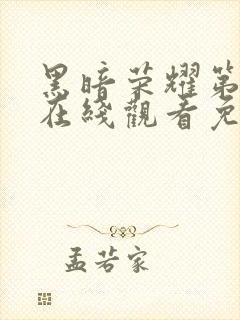 黑暗荣耀第
在线觀看免
孟若家